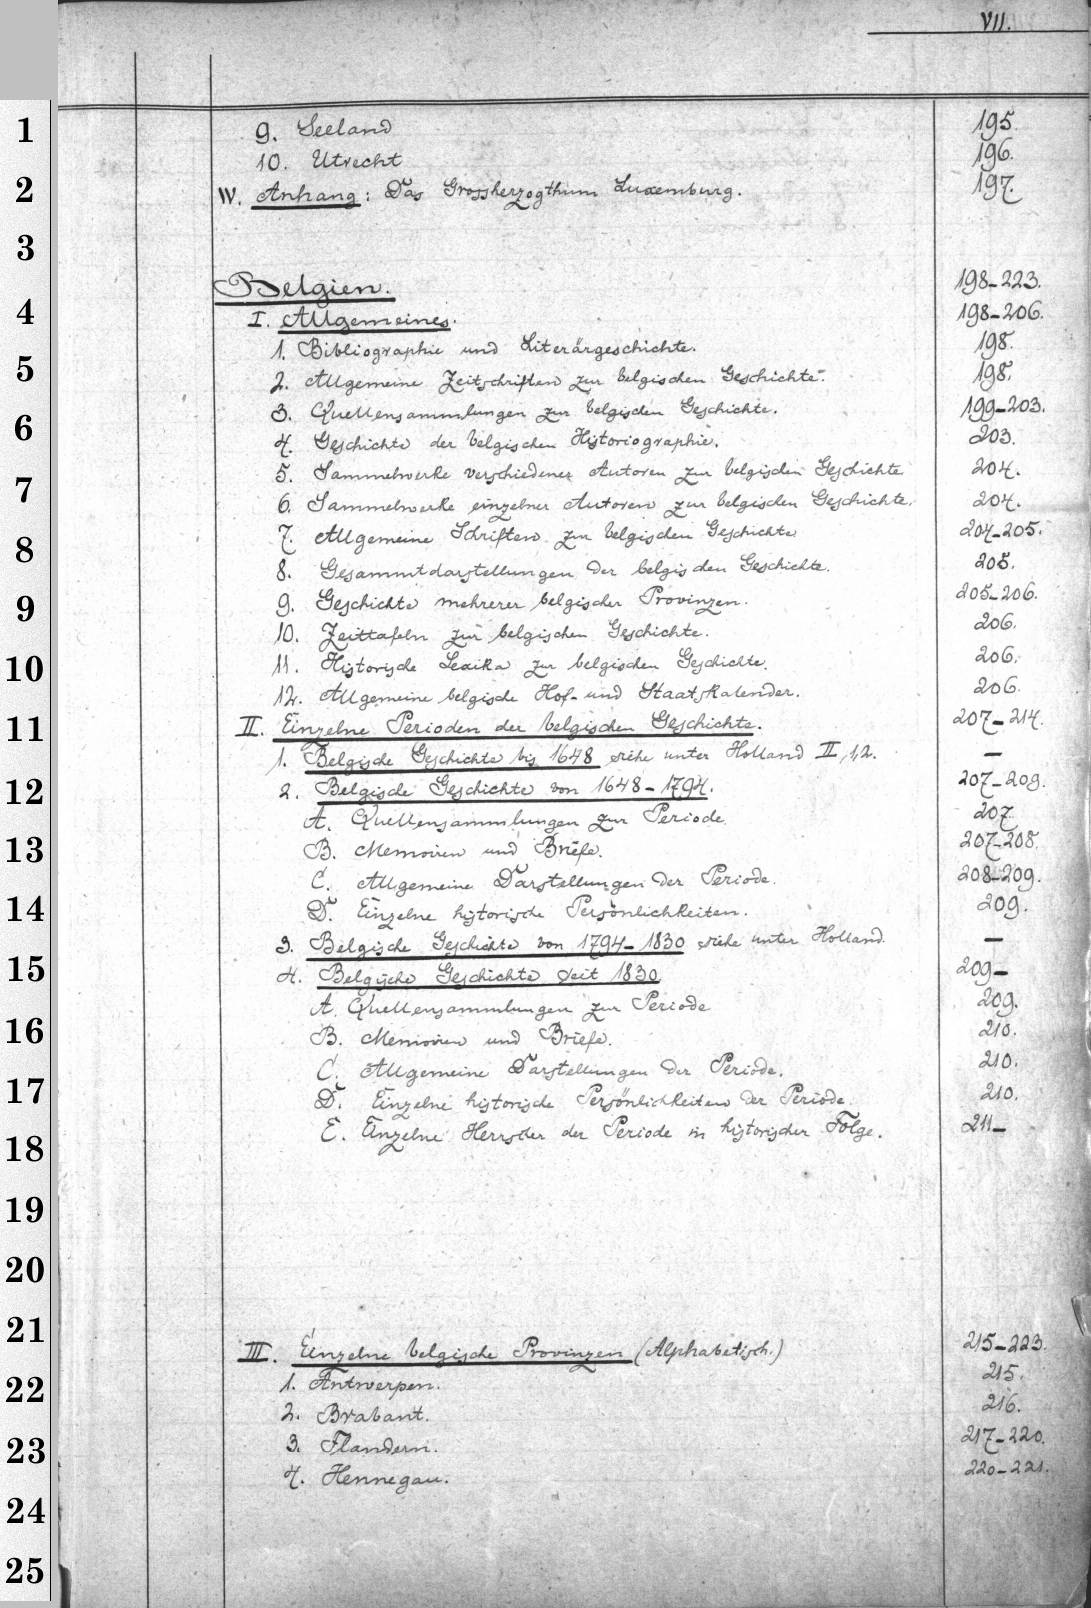 VII.
9. Seeland 195.
10. Utrecht 196.
IV. Anhang: Das Grossherzogthum Luxemburg. 197.
Belgien. 198-223.
I. Allgemeines. 198-206.
1. Bibliographie und Literärgeschichte. 198.
2. Allgemeine Zeitschriften zur belgischen Geschichte. 198.
3. Quellensammlungen zur belgischen Geschichte. 199-203.
4. Geschichte der belgischen Historiographie. 203.
5. Sammelwerke verschiedener Autoren zur belgischen Geschichte 204.
6. Sammelwerke einzelner Autoren zur belgischen Geschichte. 204.
7. Allgemeine Schriften zur belgischen Geschichte 204-205.
8. Gesammtdarstellungen der belgischen Geschichte. 205.
9. Geschichte mehrerer belgischer Provinzen. 205-206.
10. Zeittafeln zur belgischen Geschichte. 206.
11. Historische Lexika zur belgischen Geschichte. 206.
12. Allgemeine belgische Hof- und Staatskalender. 206.
II. Einzelne Perioden der belgischen Geschichte. 207-214.
1. Belgische Geschichte bis 1648 siehe unter Holland II, 1,2. –
2. Belgische Geschichte von 1648-1794. 207-209.
A. Quellensammlungen zur Periode 207
B. Memoiren und Briefe. 207-208.
C. Allgemeine Darstellungen der Periode. 208-209.
D. Einzelne historische Persönlichkeiten. 209.
3. Belgische Geschichte von 1794-1830 siehe unter Holland. –
4. Belgische Geschichte seit 1830 209-
A. Quellensammlungen zur Periode 209.
B. Memoiren und Briefe. 210.
C. Allgemeine Darstellungen der Periode. 210.
D. Einzelne historische Persönlichkeiten der Periode. 210.
E. Einzelne Herrscher der Periode in historischer Folge. 211-
III. Einzelne belgische Provinzen (Alphabetisch.) 215-223.
1. Antwerpen. 215.
2. Brabant. 216.
3. Flandern. 217-220.
4. Hennegau. 220-221.
1
2
3
4
5
6
7
8
9
10
11
12
13
14
15
16
17
18
19
20
21
22
23
24
25